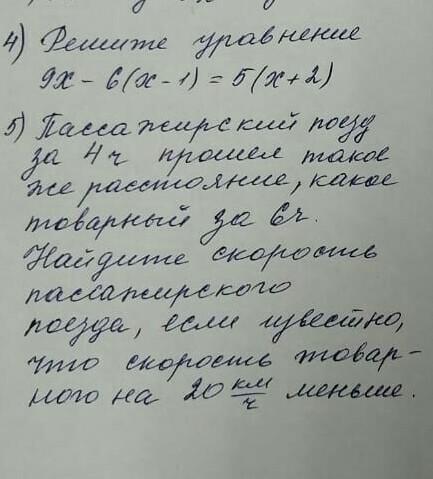 4) Решите уравнение
9х - 6(х - 1) = 5(х + 2)
5) Пассажирский поезд
за 4 ч прошел такое
же расстояние, какое
товарный за 6 ч.
Найдите скорость
пассажирского
поезда, если известно,
что скорость товар-
ного на 20 км/ч меньше.